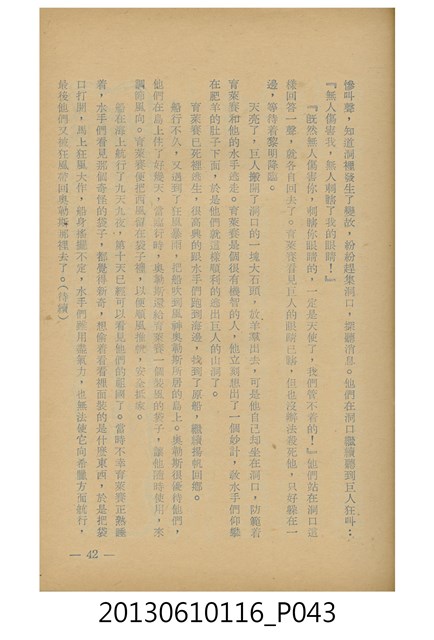 慘叫聲，知道洞裡發生了變故，紛紛趕集洞口，探聽消息。他們在洞口繼續聽到巨人狂叫：
『無人傷害我，無人刺瞎了我的眼睛！』
『既然無人傷害你，刺瞎你眼睛的，一定是天使了，我們管不着的！』他們站在洞口這
樣回答一聲，就各自回去了。育萊賽看見巨人的眼睛已瞎，但也沒辦法殺死他，只好躲在一
邊，等待着黎明降臨。
天亮了，巨人搬開了洞口的一塊大石頭，放羊羣出去，可是他自己却坐在洞口，防範着
育萊賽和他的水手逃走。育萊賽是個很有機智的人，他立刻想出了一個妙計，敎水手們仰攀
在肥羊的肚子下面，於是他們就這樣順利的逃出巨人的山洞了。
育萊賽已死裡逃生，很高興的跟水手們跑到海邊，找到了原船，繼續揚帆回鄉。
船行不久，又遇到了狂風暴雨，把船吹到風神奧勒斯所居的島上。奧勒斯很優待他們，
他們在島上住了幾天，當臨行時，奧勒斯還給育萊賽一個裝風的袋子，讓他隨時使用，來
調節風向。育萊賽便把西風留在袋子裡，以便順風推舟，安全抵家。
船在海上航行了九天九夜，第十天已經可以看見他們的祖國了。當時不幸育萊賽正熟睡
着，水手們看見那個奇怪的袋子，都覺得新奇，想偷着看看裡面裝的是什麼東西，於是把袋
口打開，馬上狂風大作，船身搖擺不定，水手們雖用盡氣力，也無法使它向希臘方面航行，
最後他們又被狂風勝回奧勒斯那裡去了。（待續）
— 42 —
20130610116_P043